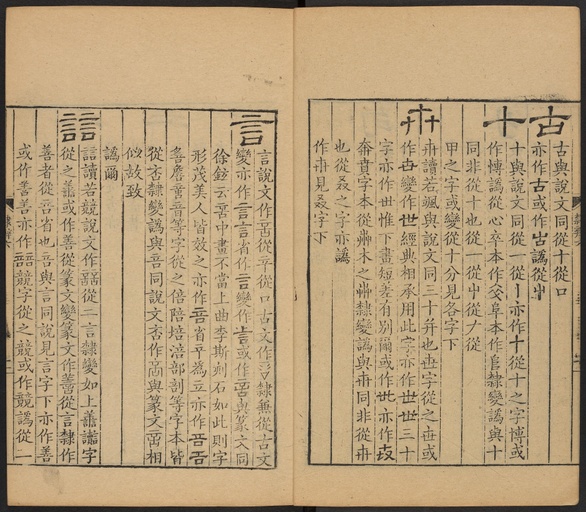 古
古與說文同從十從口
亦作古或作古譌從屮
十
十與說文同從一從丨亦作十從十之字博或
作愽譌從心卒本作阜本作隸變譌與十
同非從十也從一從屮從𠂇從
甲之字或變從十分見各字下
卅
卅讀若颯與說文同三十幷也世字從之世或
作世變作世經典相承用此字亦作世世三十
字亦作世惟下畫短差有別爾或作世亦作
奔賁字本從艸木之艸隸變譌與卅同非從卅
也從叒之字亦譌
作卅見叒字下
言
言說文作從䇂從口古文作隸無從古文
變亦作言言省作言變作言或作與篆文同
徐鉉云中畫不當上曲李斯刻石如此則字
形茂美人皆效之亦作省䇂為立亦作
善麐童音等字從之倍陪培涪部剖等字本皆
從咅隸變譌與音同說文咅作與篆文相
似故致
譌爾
誩
誩讀若競說文作從二言隸變如上譱讟字
從之譱或作善從篆文變篆文作譱從言隸作
善者從音省也音與言同說見言字下亦作善
或作善亦作競字從之競或作競譌從一